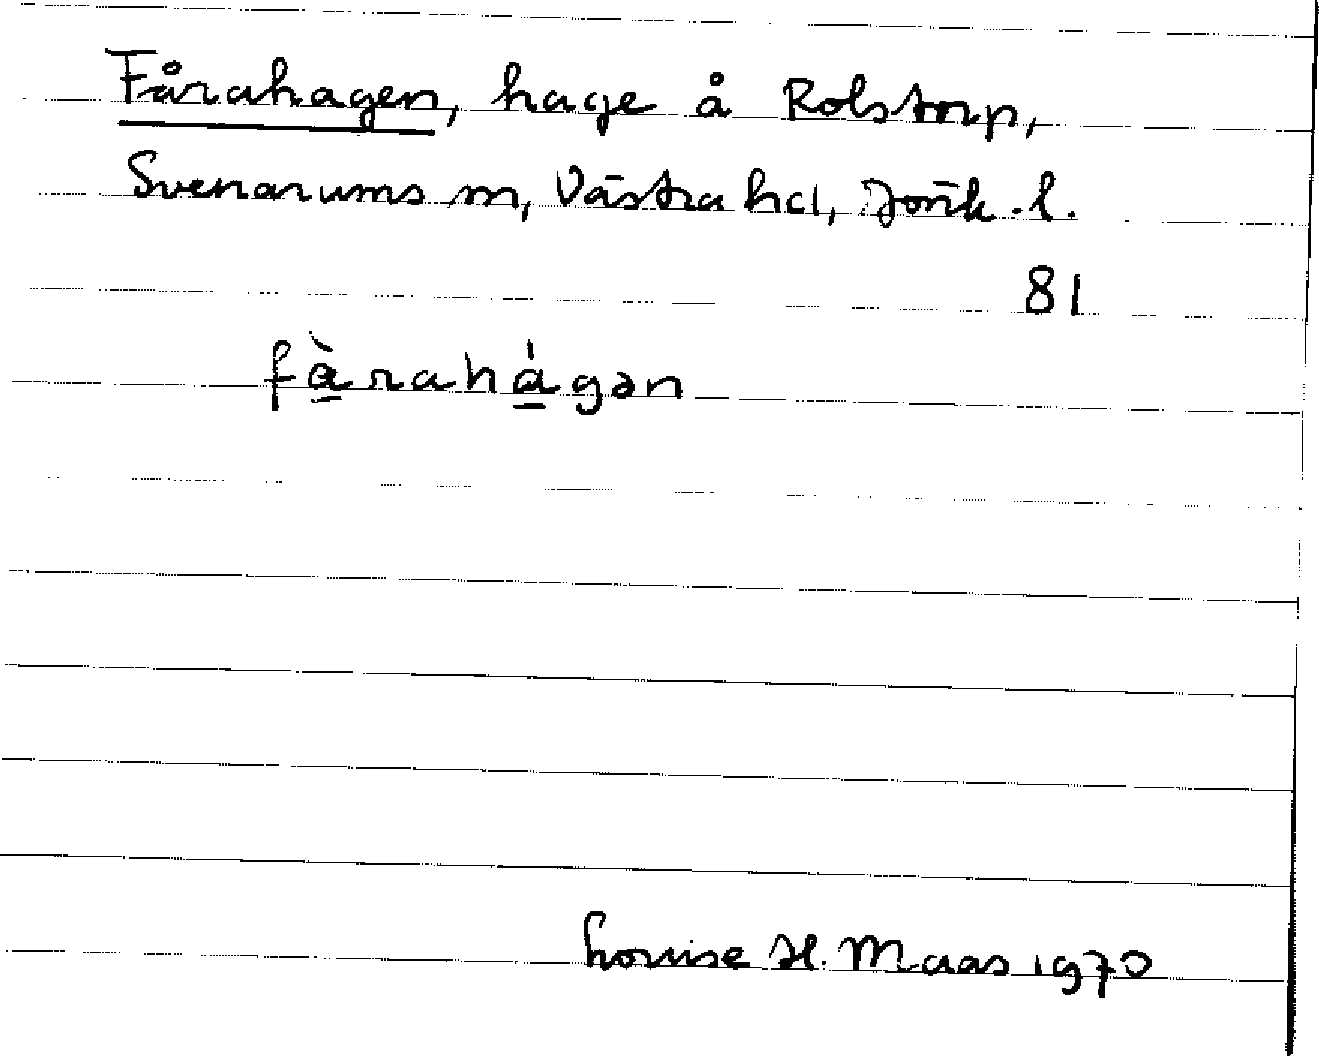 Fårahagen, hage å Rolstorp,
Svenarums sn, Västra hd, Jönk. l.
81
fàrahágən
Louise H. Maas 1970